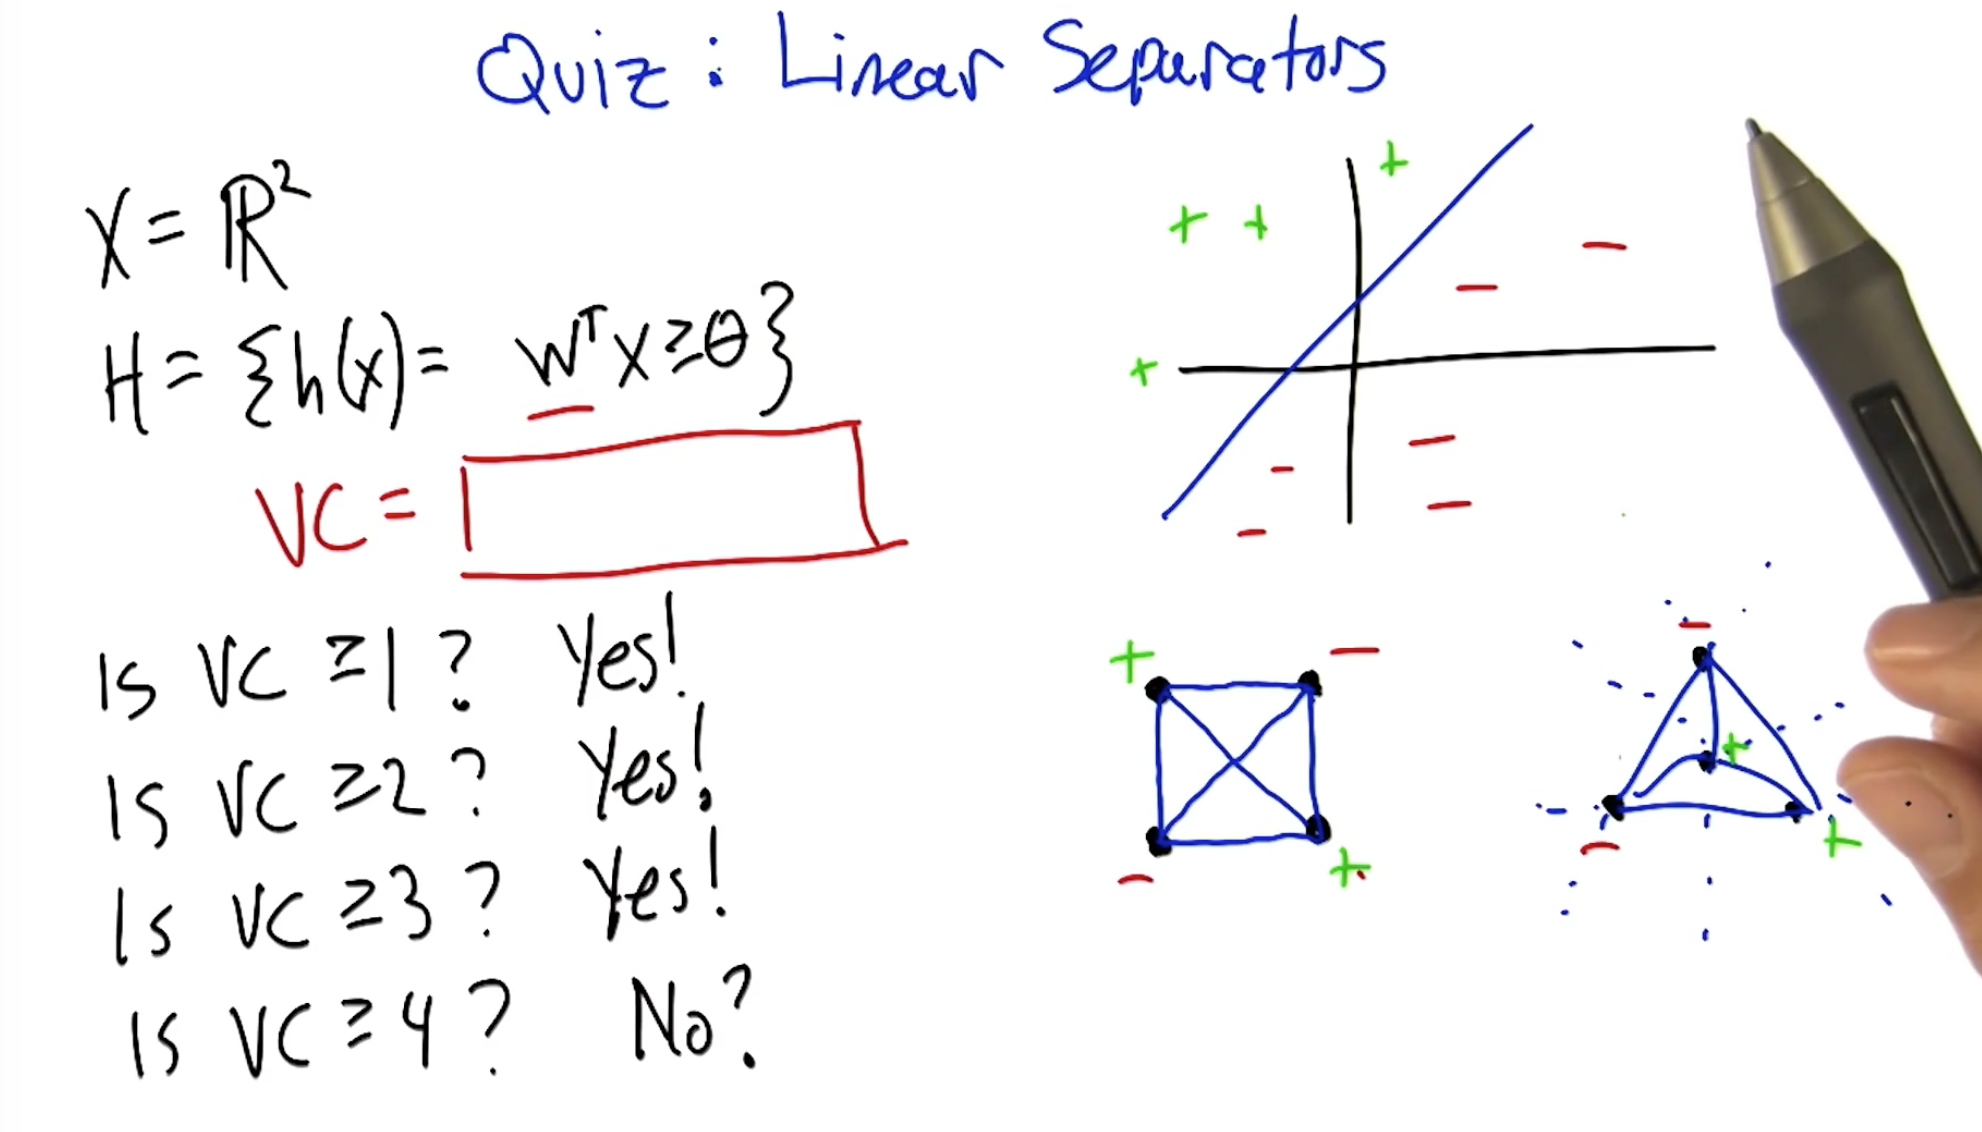 Quiz: Linear Separators
X = ℝ²
H = {h(x) = wᵀx ≥ θ}
VC =
Is VC ≥ 1 ? Yes!
Is VC ≥ 2 ? Yes!
Is VC ≥ 3 ? Yes!
Is VC ≥ 4 ? No?
+
+ +
-
-
+
-
-
-
-
+ -
- +
-
+
- +